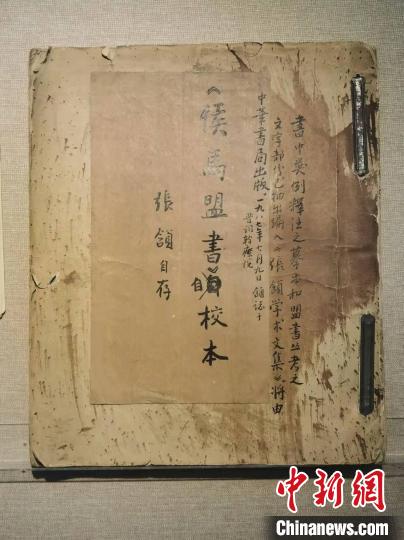 書中类例釋注之摹本和盟書丛考之
文字部份已抽出編入《張頷学术文集》将由
中華書局出版。一九八七年七月九日頷誌于
晋祠幹療院
《侯馬盟書》自校本
張頷自存
中新网
Chinanews.com